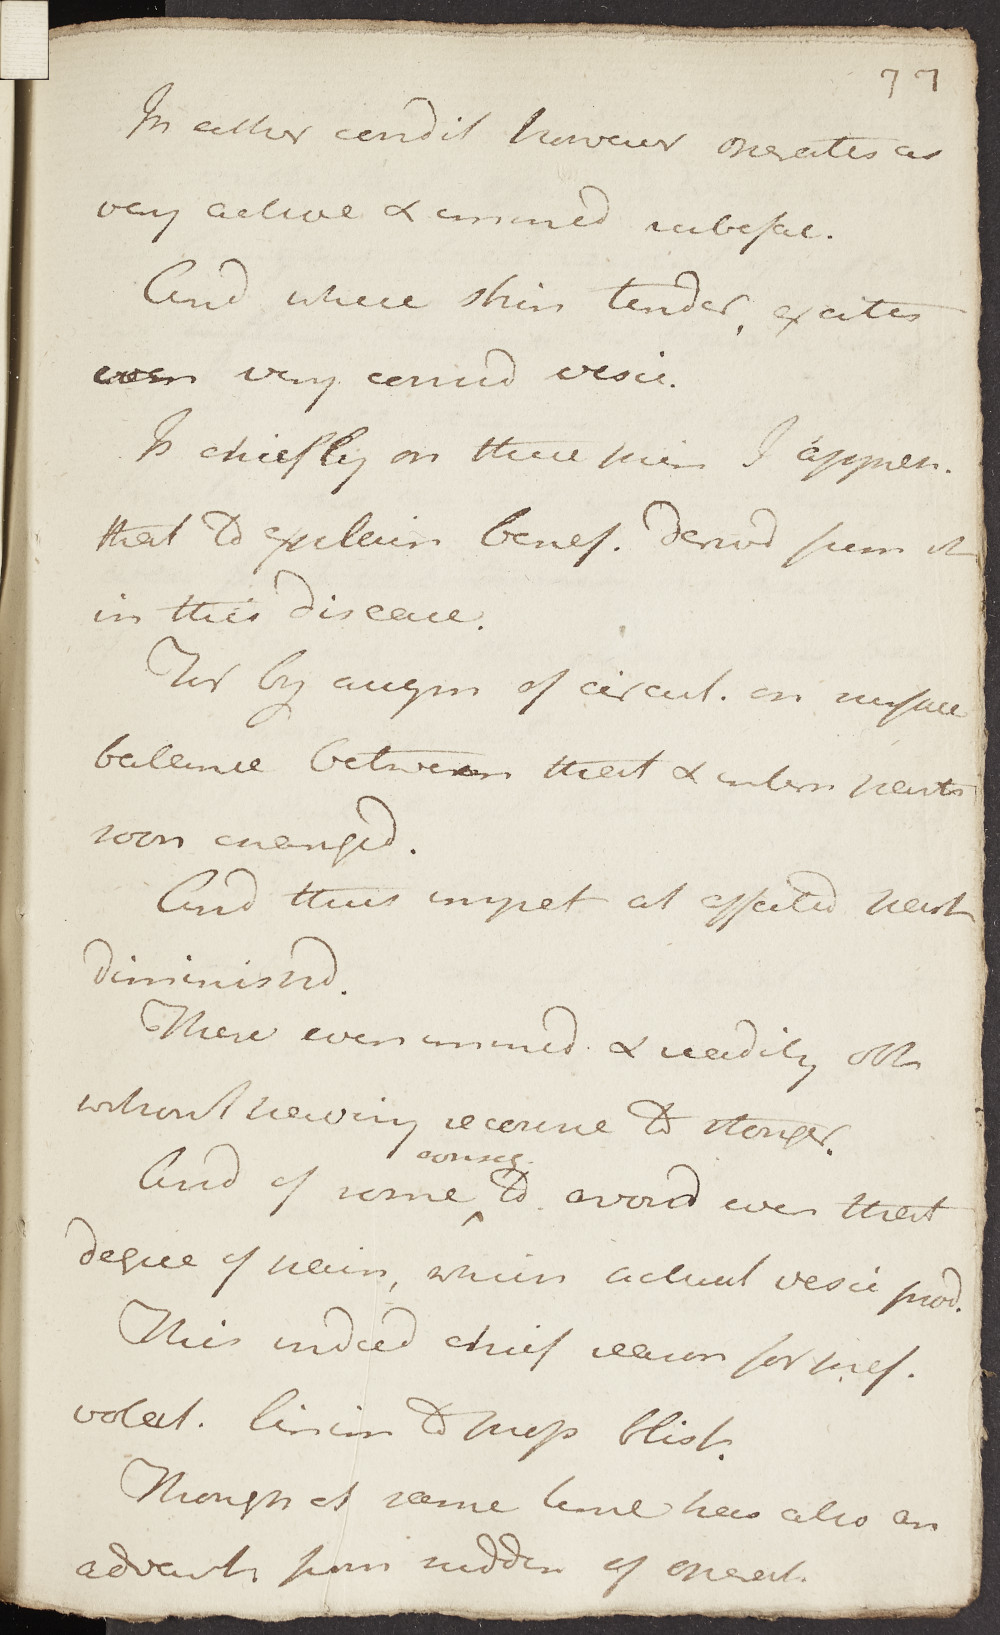 77
In either condit however operates as
very active & immed rubefac.
And where skin tender, excites
even very consid vesic.
Is chiefly on these prin I appreh.
that to explain benef. derivd from it
in this disease.
For by augm of circul. on surface
balance between that & intern parts
soon changed.
And thus impet at affected part
diminishd.
There even immed & readily obt
without having recourse to stonger.
And of some conseq. to avoid even that
degree of pain, which actual vesic prod.
This indeed chief reason for pref.
volat. linim to props blist.
Though at same time has also an
advant from sudden of operat.